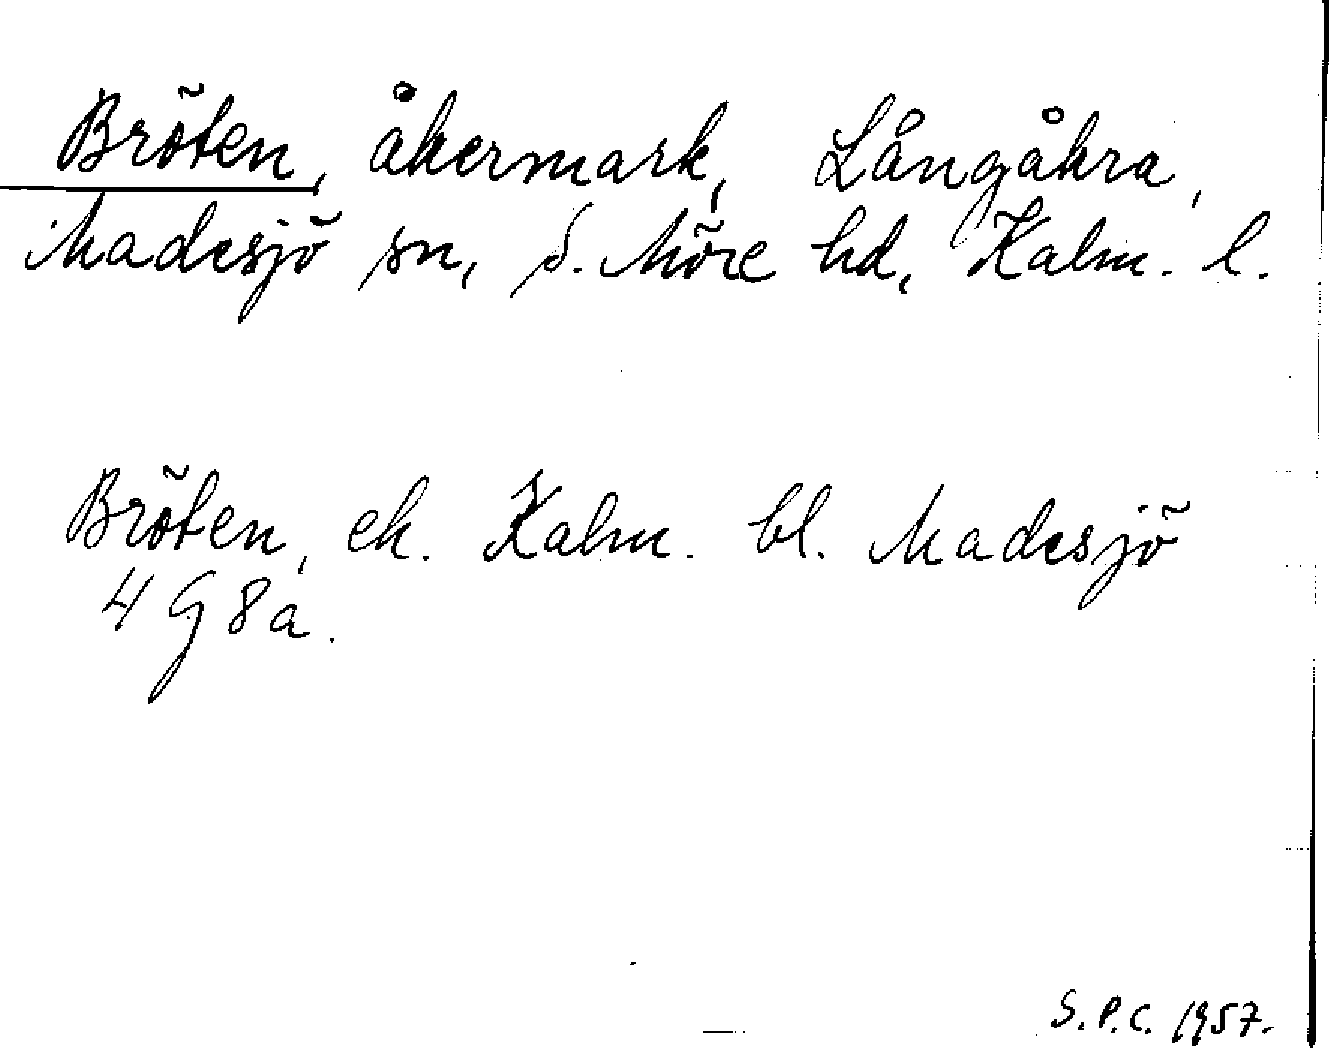 Bröten, åkermark, Långåkra,
Madesjö sn, S. Möre hd, Kalm. l.
Bröten, ek. Kalm. bl. Madesjö
4 G 8a.
S.P.C. 1957.